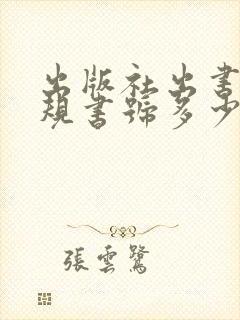 出版社出書
規書號多少
張雲鷺